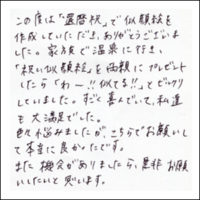 この度は「還暦祝」で似顔絵を
作成していただき、ありがとうございま
した。家族で温泉に行き、
「祝い似顔絵」を両親にプレゼント
したら「わー!!似てる!!」とビックリ
していました。すごく喜んでいて、私達
も大満足でした。
色々悩みましたが、こちらでお願いし
て本当に良かったです。
また機会がありましたら、是非お願
いしたいと思います。